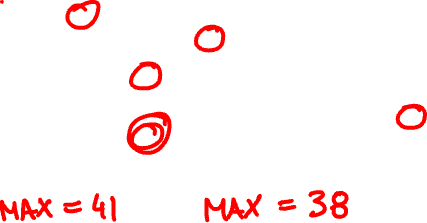 MAX = 41 MAX = 38